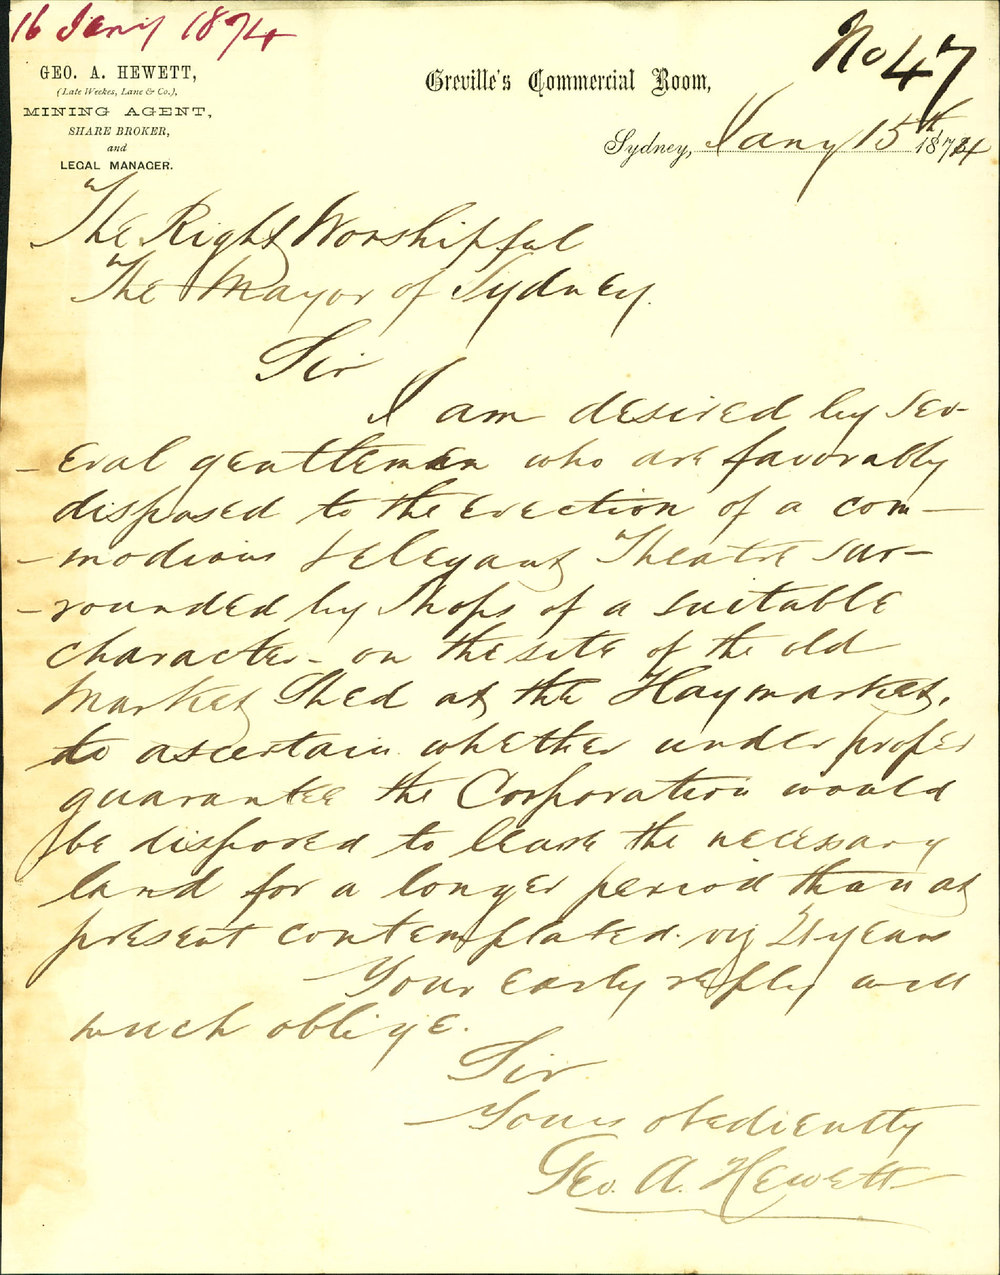 16 Jany 1874
No 47
GEO. A. HEWETT,
(Late Weekes, Lane & Co.),
MINING AGENT,
SHARE BROKER,
and
LEGAL MANAGER.
Greville's Commercial Room,
Sydney, Jany 15th 1874
The Right Worshipful
The Mayor of Sydney.
Sir
I am desired by sev-
-eral gentlemen who are favorably
disposed to the erection of a com-
-modious & elegant Theatre sur-
-rounded by shops of a suitable
character - on the site of the old
Market Shed at the Haymarket,
to ascertain whether under proper
guarantee the Corporation would
be disposed to lease the necessary
land for a longer period than at
present contemplated. viz 21 years
Your early reply will
much oblige.
Sir
Yours obediently
Geo. A. Hewett